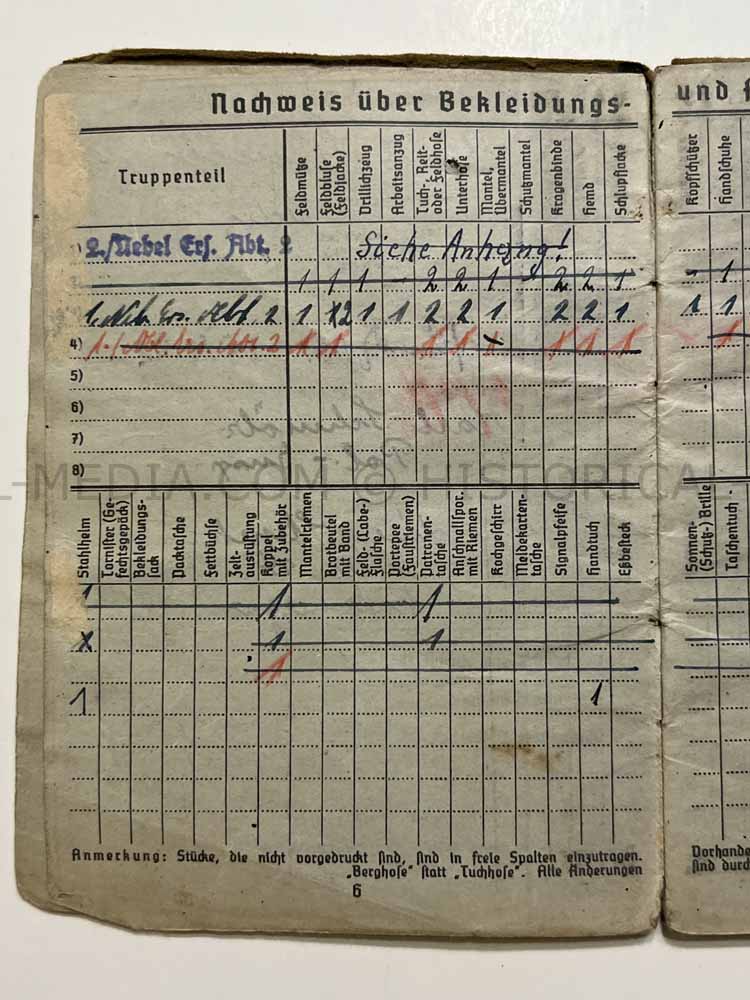 Nachweis über Bekleidungs-
und
Truppenteil
Feldmütze
Feldbluse (Feldjacke)
Drillichzeug
Arbeitsanzug
Tuch-, Reit- oder Feldhose
Unterhose
Mantel, Übermantel
Schutzmantel
Kragenbinde
Hemd
Schlupfjacke
Kopfschützer
Handschuhe
2./Nebel Ers. Abt. 2 Siehe Anhang!
1 1 1 2 2 1 2 2 1 1
Ers. Abt 2 1 2 1 1 2 2 1 2 2 1 1 1
4) 1 1 1 1 1 1 1 1
5)
6)
7)
8)
L-MEDIA.COM © HISTORICAL
Stahlhelm
Tornister (Gefechtsgepäck)
Bekleidungs-sack
Packtasche
Fettbüchse
Zelt-ausrüstung
Koppel mit Zubehör
Mantelriemen
Brotbeutel mit Band
Feld-(Labe-) flasche
Portepee (Faustriemen)
Patronen-tasche
Anschnallspor. mit Riemen
Kochgeschirr
Meldekarten-tasche
Signalpfeife
Handtuch
Eßbesteck
Sonnen-(Schutz-) Brille
Taschentuch
1 1 1
x 1 1
1
1 1
Anmerkung: Stücke, die nicht vorgedruckt sind, sind in freie Spalten einzutragen.
„Berghose" statt „Tuchhose". Alle Änderungen
Vorhande
sind durc
6